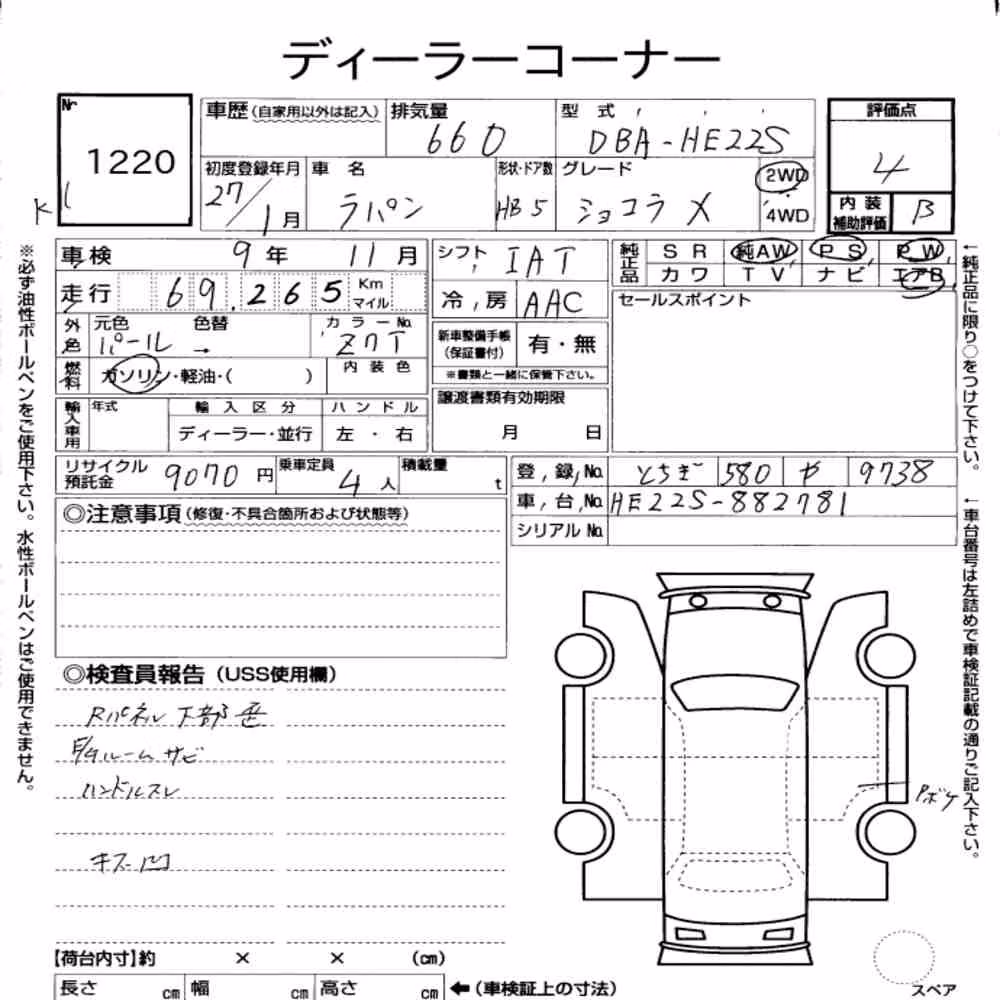 ディーラーコーナー
№ 1220
K
車歴(自家用以外は記入) 排気量 660 型式 DBA-HE22S 評価点 4
初度登録年月 27/1月 車名 ラパン 形状・ドア数 HB5 グレード ショコラ X 2WD 4WD 内装補助評価 B
車検 9年 11月 シフト IAT 純正品 SR 純AW PS PW
走行 69.265 Km マイル 冷,房 AAC カワ TV ナビ エアB
セールスポイント
外色 元色 パール 色替 → カラーNo. Z7T 新車整備手帳(保証書付) 有・無
燃料 ガソリン・軽油・( ) 内装色 ※書類と一緒に保管下さい。
輸入車用 年式 輸入区分 ディーラー・並行 ハンドル 左・右 譲渡書類有効期限 月 日
リサイクル預託金 9070円 乗車定員 4人 積載量 t 登,録,No. とちぎ 580 や 9738
車,台,No. HE22S-882781
シリアルNo.
◎注意事項(修復・不具合箇所および状態等)
◎検査員報告(USS使用欄)
Rパネル下部
ルームサビ
ハンドルスレ
キズ凹
Pボケ
【荷台内寸】約 × × (cm)
長さ cm 幅 cm 高さ cm ←(車検証上の寸法)
スペア
※必ず油性ボールペンをご使用下さい。水性ボールペンはご使用できません。
←純正品に限り○をつけて下さい。
←車台番号は左詰めで車検証記載の通りご記入下さい。